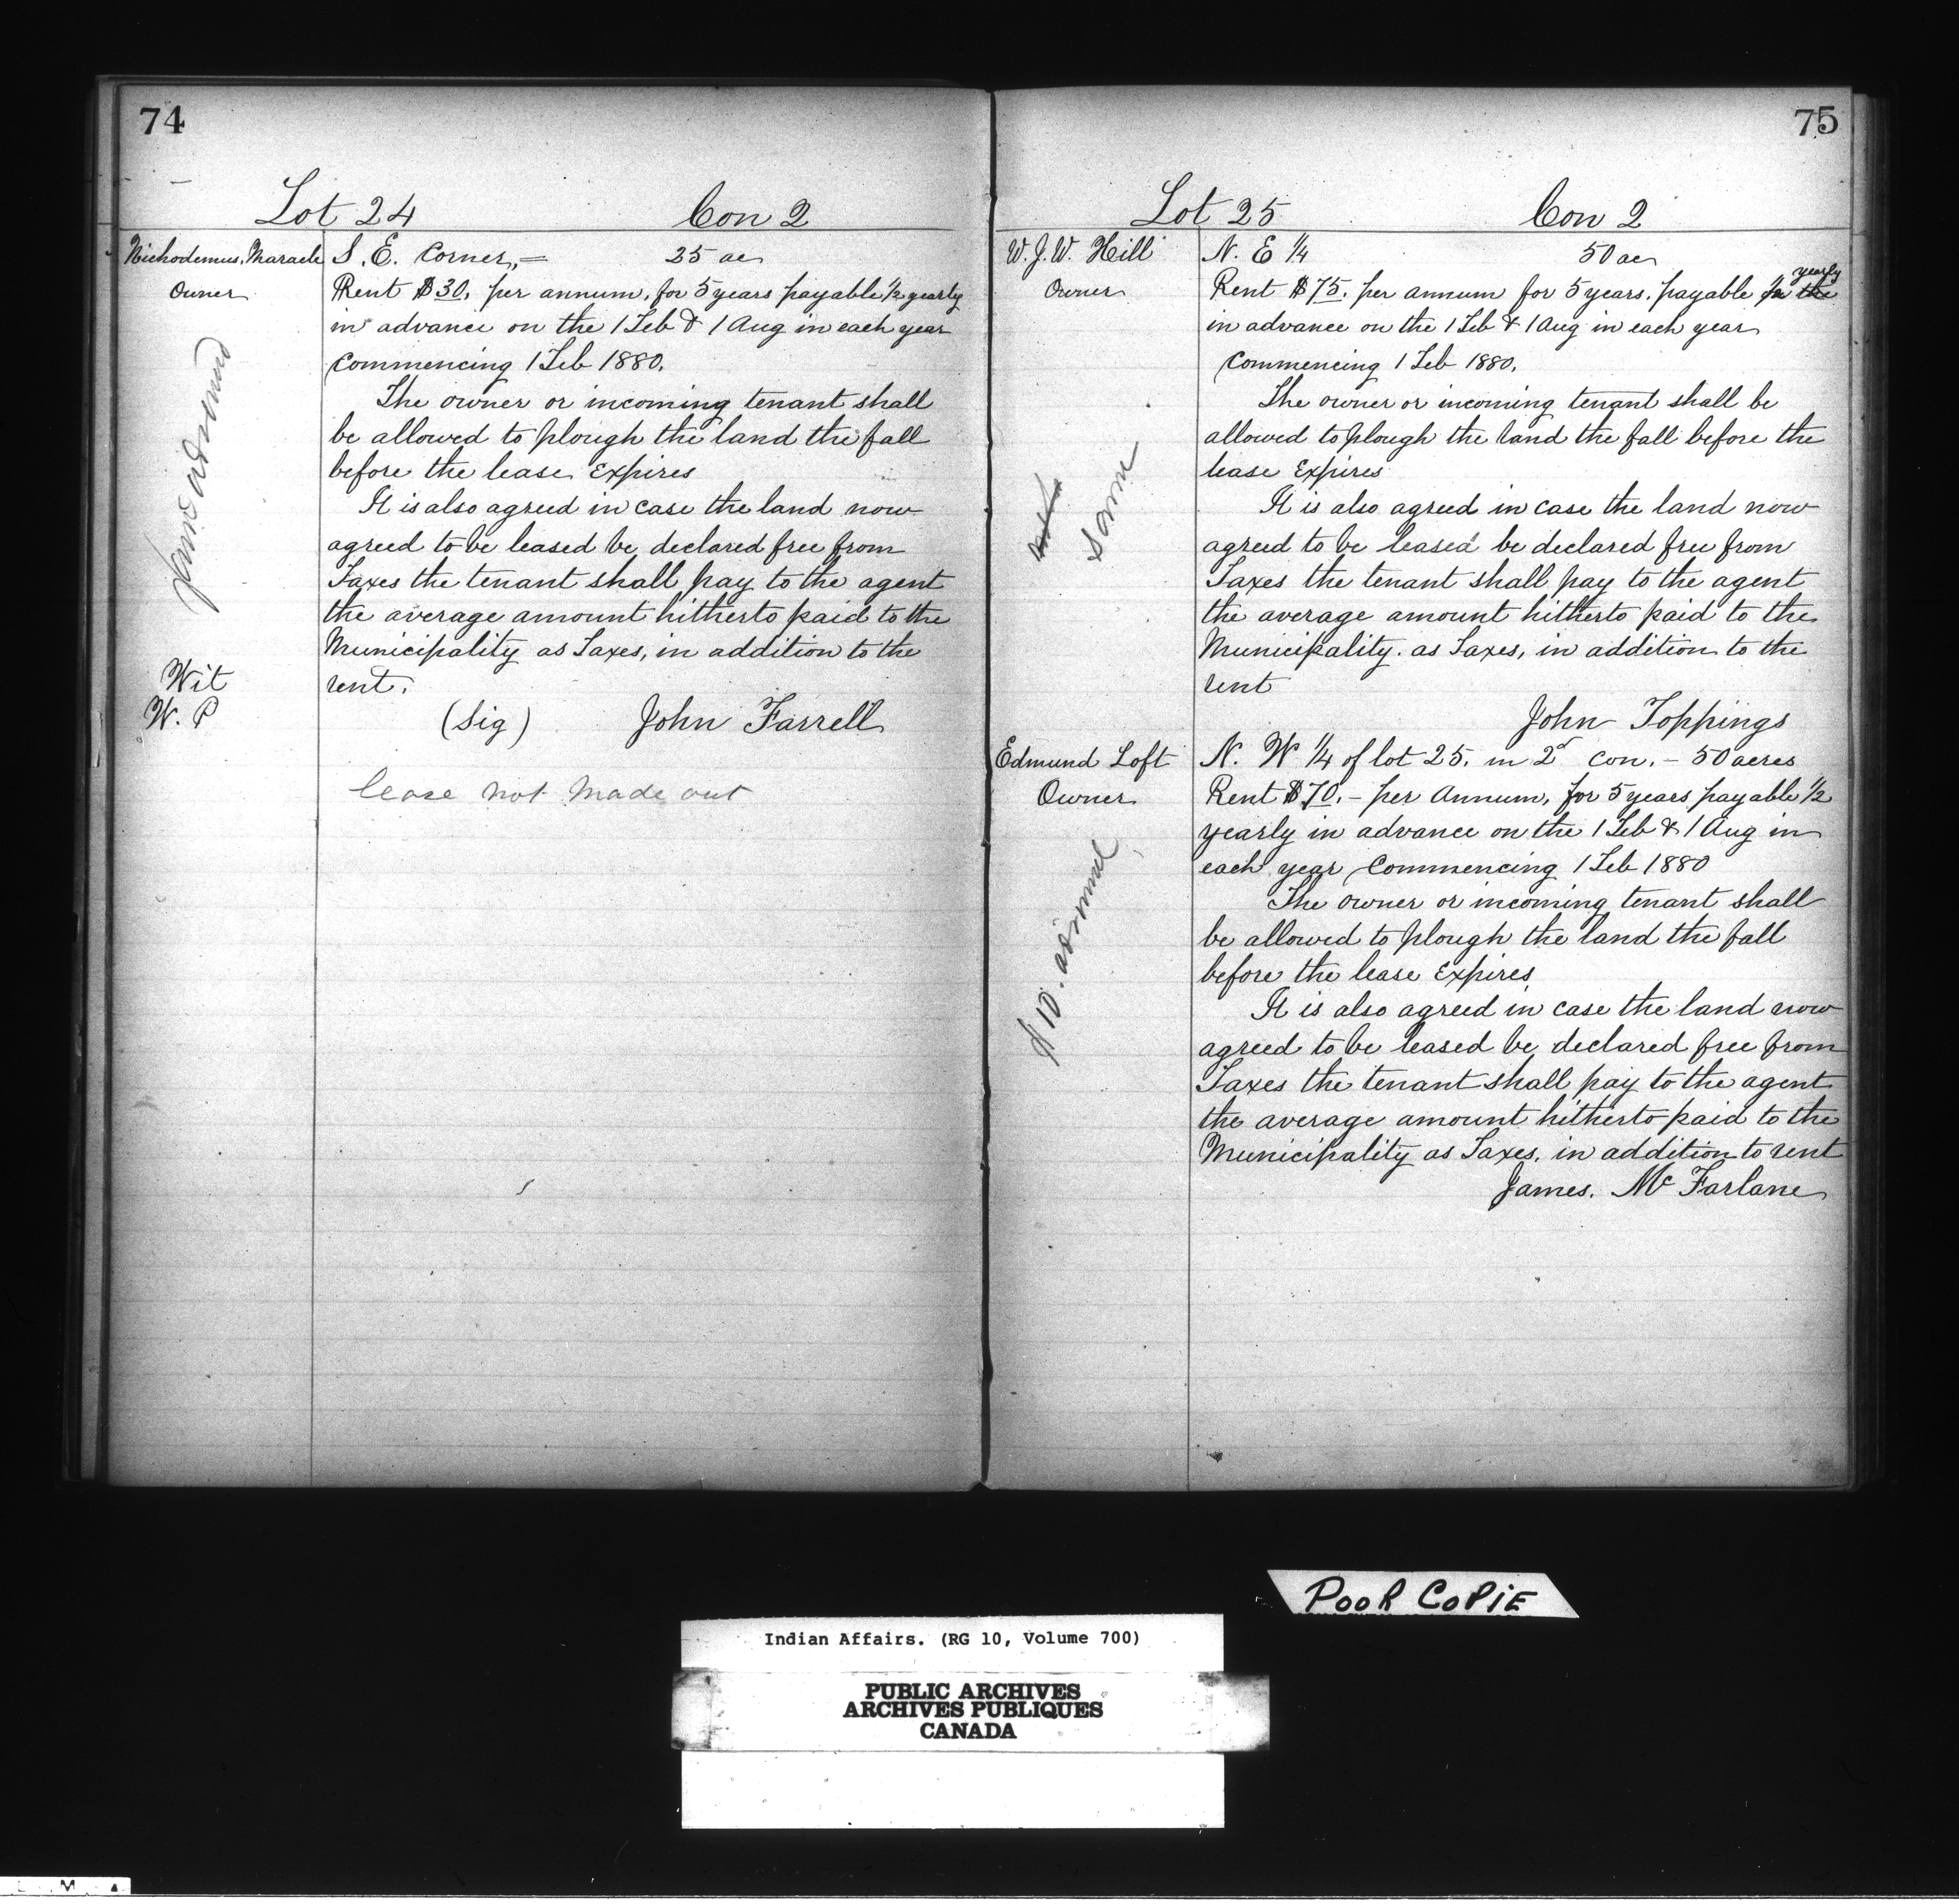 74
Lot 24 Con 2
Nichodemus Maracle
Owner
S. E. Corner, = 25 ac
Rent $30. per annum, for 5 years payable ½ yearly
in advance on the 1 Feb & 1 Aug in each year
Commencing 1 Feb 1880.
The owner or incoming tenant shall
be allowed to plough the land the fall
before the lease Expires
It is also agreed in case the land now
agreed to be leased be declared free from
Taxes the tenant shall pay to the agent
the average amount hitherto paid to the
Municipality as Taxes, in addition to the
rent.
Wit
W. P
(Sig) John Farrell
lease not made out
75
Lot 25 Con 2
W. J. W. Hill
Owner
same
N. E ¼ 50 ac
Rent $75. per annum for 5 years. payable ½ the yearly
in advance on the 1 Feb & 1 Aug in each year
Commencing 1 Feb 1880.
The owner or incoming tenant shall be
allowed to plough the land the fall before the
lease Expires
It is also agreed in case the land now
agreed to be leased be declared free from
Taxes the tenant shall pay to the agent
the average amount hitherto paid to the
Municipality. as Taxes, in addition to the
rent
John Toppings
Edmund Loft
Owner
$10.
N. W ¼ of lot 25. in 2d con. - 50 acres
Rent $70. - per Annum, for 5 years payable ½
yearly in advance on the 1 Feb & 1 Aug in
each year Commencing 1 Feb 1880
The owner or incoming tenant shall
be allowed to plough the land the fall
before the lease Expires
It is also agreed in case the land now
agreed to be leased be declared free from
Taxes the tenant shall pay to the agent
the average amount hitherto paid to the
Municipality as Taxes. in addition to rent
James. Mc Farlane
POOR COPIE
Indian Affairs. (RG 10, Volume 700)
PUBLIC ARCHIVES
ARCHIVES PUBLIQUES
CANADA